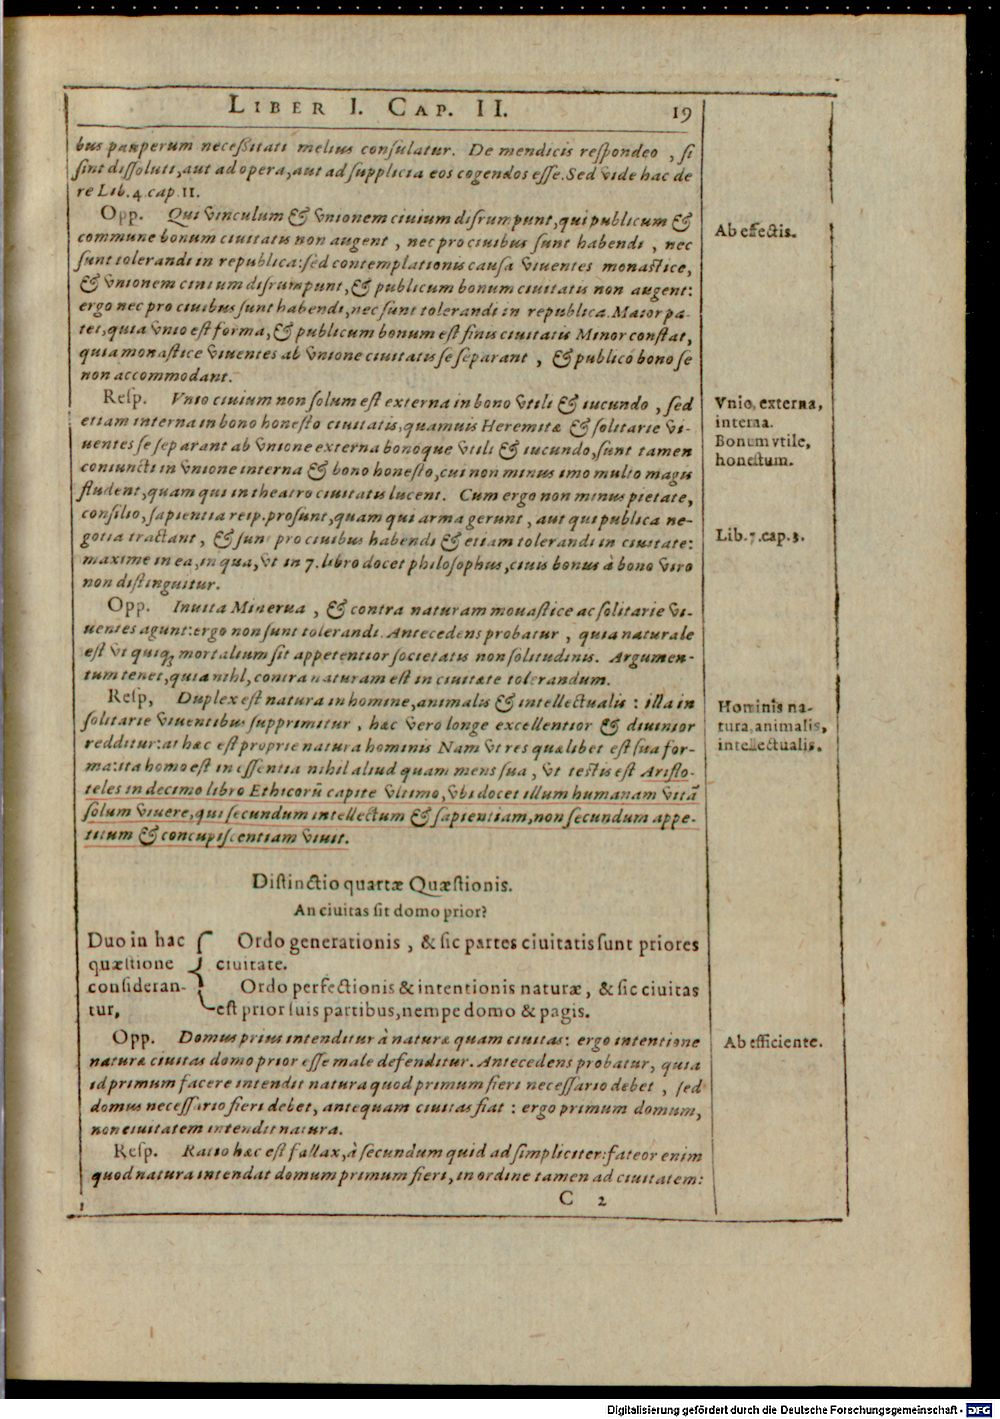 LIBER I. CAP. II. 19
bus pauperum neceßitati melius consulatur. De mendicis respondeo, si
sint dissoluti, aut ad opera, aut ad supplicia eos cogendos esse. Sed vide hac de
re Lib. 4. cap. II.
Opp. Qui vinculum & vnionem ciuium disrumpunt, qui publicum &
commune bonum ciuitatis non augent, nec pro ciuibus sunt habendi, nec
sunt tolerandi in republica: sed contemplationis causa viuentes monastice,
& vnionem ciuium disrumpunt, & publicum bonum ciuitatis non augent:
ergo nec pro ciuibus sunt habendi, nec sunt tolerandi in republica. Maior pa-
tet, quia vnio est forma, & publicum bonum est finis ciuitatis Minor constat,
quia monastice viuentes ab vnione ciuitatis se separant, & publico bono se
non accommodant.
Ab effectis.
Resp. Vnio ciuium non solum est externa in bono vtili & iucundo, sed
etiam interna in bono honesto ciuitatis, quamuis Heremitæ & solitarie vi-
uentes se separant ab vnione externa bonoque vtili & iucundo, sunt tamen
coniuncti in vnione interna & bono honesto, cui non minus imo multo magis
student, quam qui in theatro ciuitatis lucent. Cum ergo non minus pietate,
consilio, sapientia reip. prosunt, quam qui arma gerunt, aut qui publica ne-
gotia tractant, & sunt pro ciuibus habendi & etiam tolerandi in ciuitate:
maxime in ea, in qua, vt in 7. libro docet philosophus, ciuis bonus à bono viro
non distinguitur.
Vnio, externa,
interna.
Bonum vtile,
honestum.
Lib. 7. cap. 3.
Opp. Inuita Minerua, & contra naturam monastice ac solitarie vi-
uentes agunt: ergo non sunt tolerandi. Antecedens probatur, quia naturale
est vt quisq; mortalium sit appetentior societatis non solitudinis. Argumen-
tum tenet, quia nihil, contra naturam est in ciuitate tolerandum.
Resp, Duplex est natura in homine, animalis & intellectualis: illa in
solitarie viuentibus supprimitur, hæc vero longe excellentior & diuinior
redditur: at hæc est proprie natura hominis Nam vt res quælibet est sua for-
ma: ita homo est in essentia nihil aliud quam mens sua, vt testis est Aristo-
teles in decimo libro Ethicorū capite vltimo, vbi docet illum humanam vitā
solum viuere, qui secundum intellectum & sapientiam, non secundum appe-
titum & concupiscentiam viuit.
Hominis na-
tura, animalis,
intellectualis.
Distinctio quartæ Quæstionis.
An ciuitas sit domo prior?
Duo in hac
quæstione
consideran-
tur,
Ordo generationis, & sic partes ciuitatis sunt priores
ciuitate.
Ordo perfectionis & intentionis naturæ, & sic ciuitas
est prior suis partibus, nempe domo & pagis.
Opp. Domus prius intenditur à natura quam ciuitas: ergo intentione
naturæ ciuitas domo prior esse male defenditur. Antecedens probatur, quia
id primum facere intendit natura quod primum fieri necessario debet, sed
domus necessario fieri debet, antequam ciuitas fiat: ergo primum domum,
non ciuitatem intendit natura.
Ab efficiente.
Resp. Ratio hæc est fallax, à secundum quid ad simpliciter: fateor enim
quod natura intendat domum primum fieri, in ordine tamen ad ciuitatem:
C 2
1
Digitalisierung gefördert durch die Deutsche Forschungsgemeinschaft - DFG